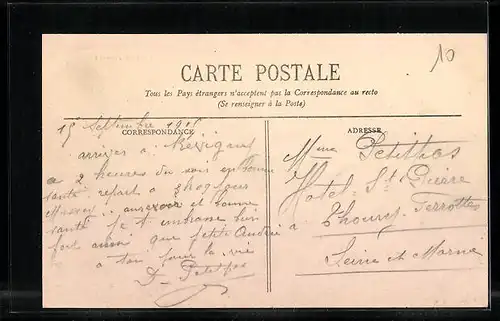 10
CARTE POSTALE
Tous les Pays étrangers n'acceptent pas la Correspondance au recto
(Se renseigner à la Poste)
CORRESPONDANCE
ADRESSE
15 Septembre
arrivés à
à 2 heures du soir en bonne
santé repart à
au revoir et bonne
santé je t embrasse bien
fort ainsi que petite
à toi pour la vie
D. Petitpas
Mme Petitpas
Hotel St Pierre
à Thoury-Ferrottes
Seine et Marne